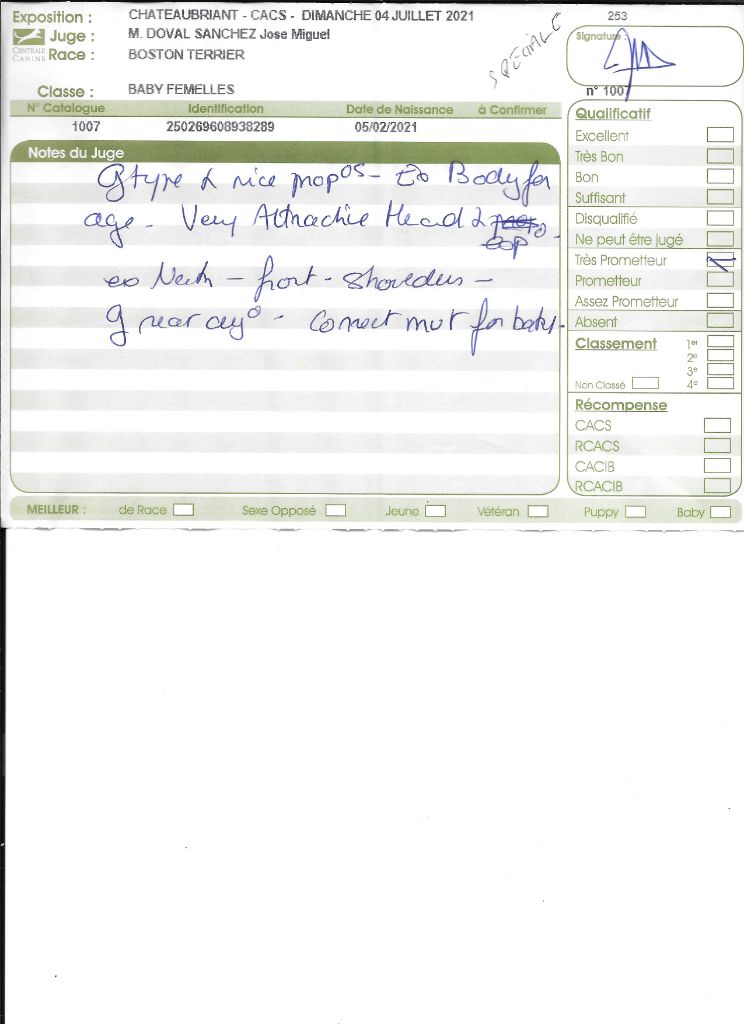 Exposition : CHATEAUBRIANT - CACS - DIMANCHE 04 JUILLET 2021 253
Juge : M. DOVAL SANCHEZ Jose Miguel
SPÉCIALE
Signature :
CENTRALE CANINE
Race : BOSTON TERRIER
Classe : BABY FEMELLES
n° 1007
N° Catalogue Identification Date de Naissance à Confirmer
1007 250269608938289 05/02/2021
Notes du Juge
G type & nice prop^os - Ex Body for
age - Very Attractive Head &
exp -
ex Neck - front - Shoulders -
G rear ang° - Correct mvt for baby.
Qualificatif
Excellent
Très Bon
Bon
Suffisant
Disqualifié
Ne peut être jugé
Très Prometteur
Prometteur
Assez Prometteur
Absent
Classement 1er
2e
3e
Non Classé 4e
Récompense
CACS
RCACS
CACIB
RCACIB
MEILLEUR : de Race Sexe Opposé Jeune Vétéran Puppy Baby